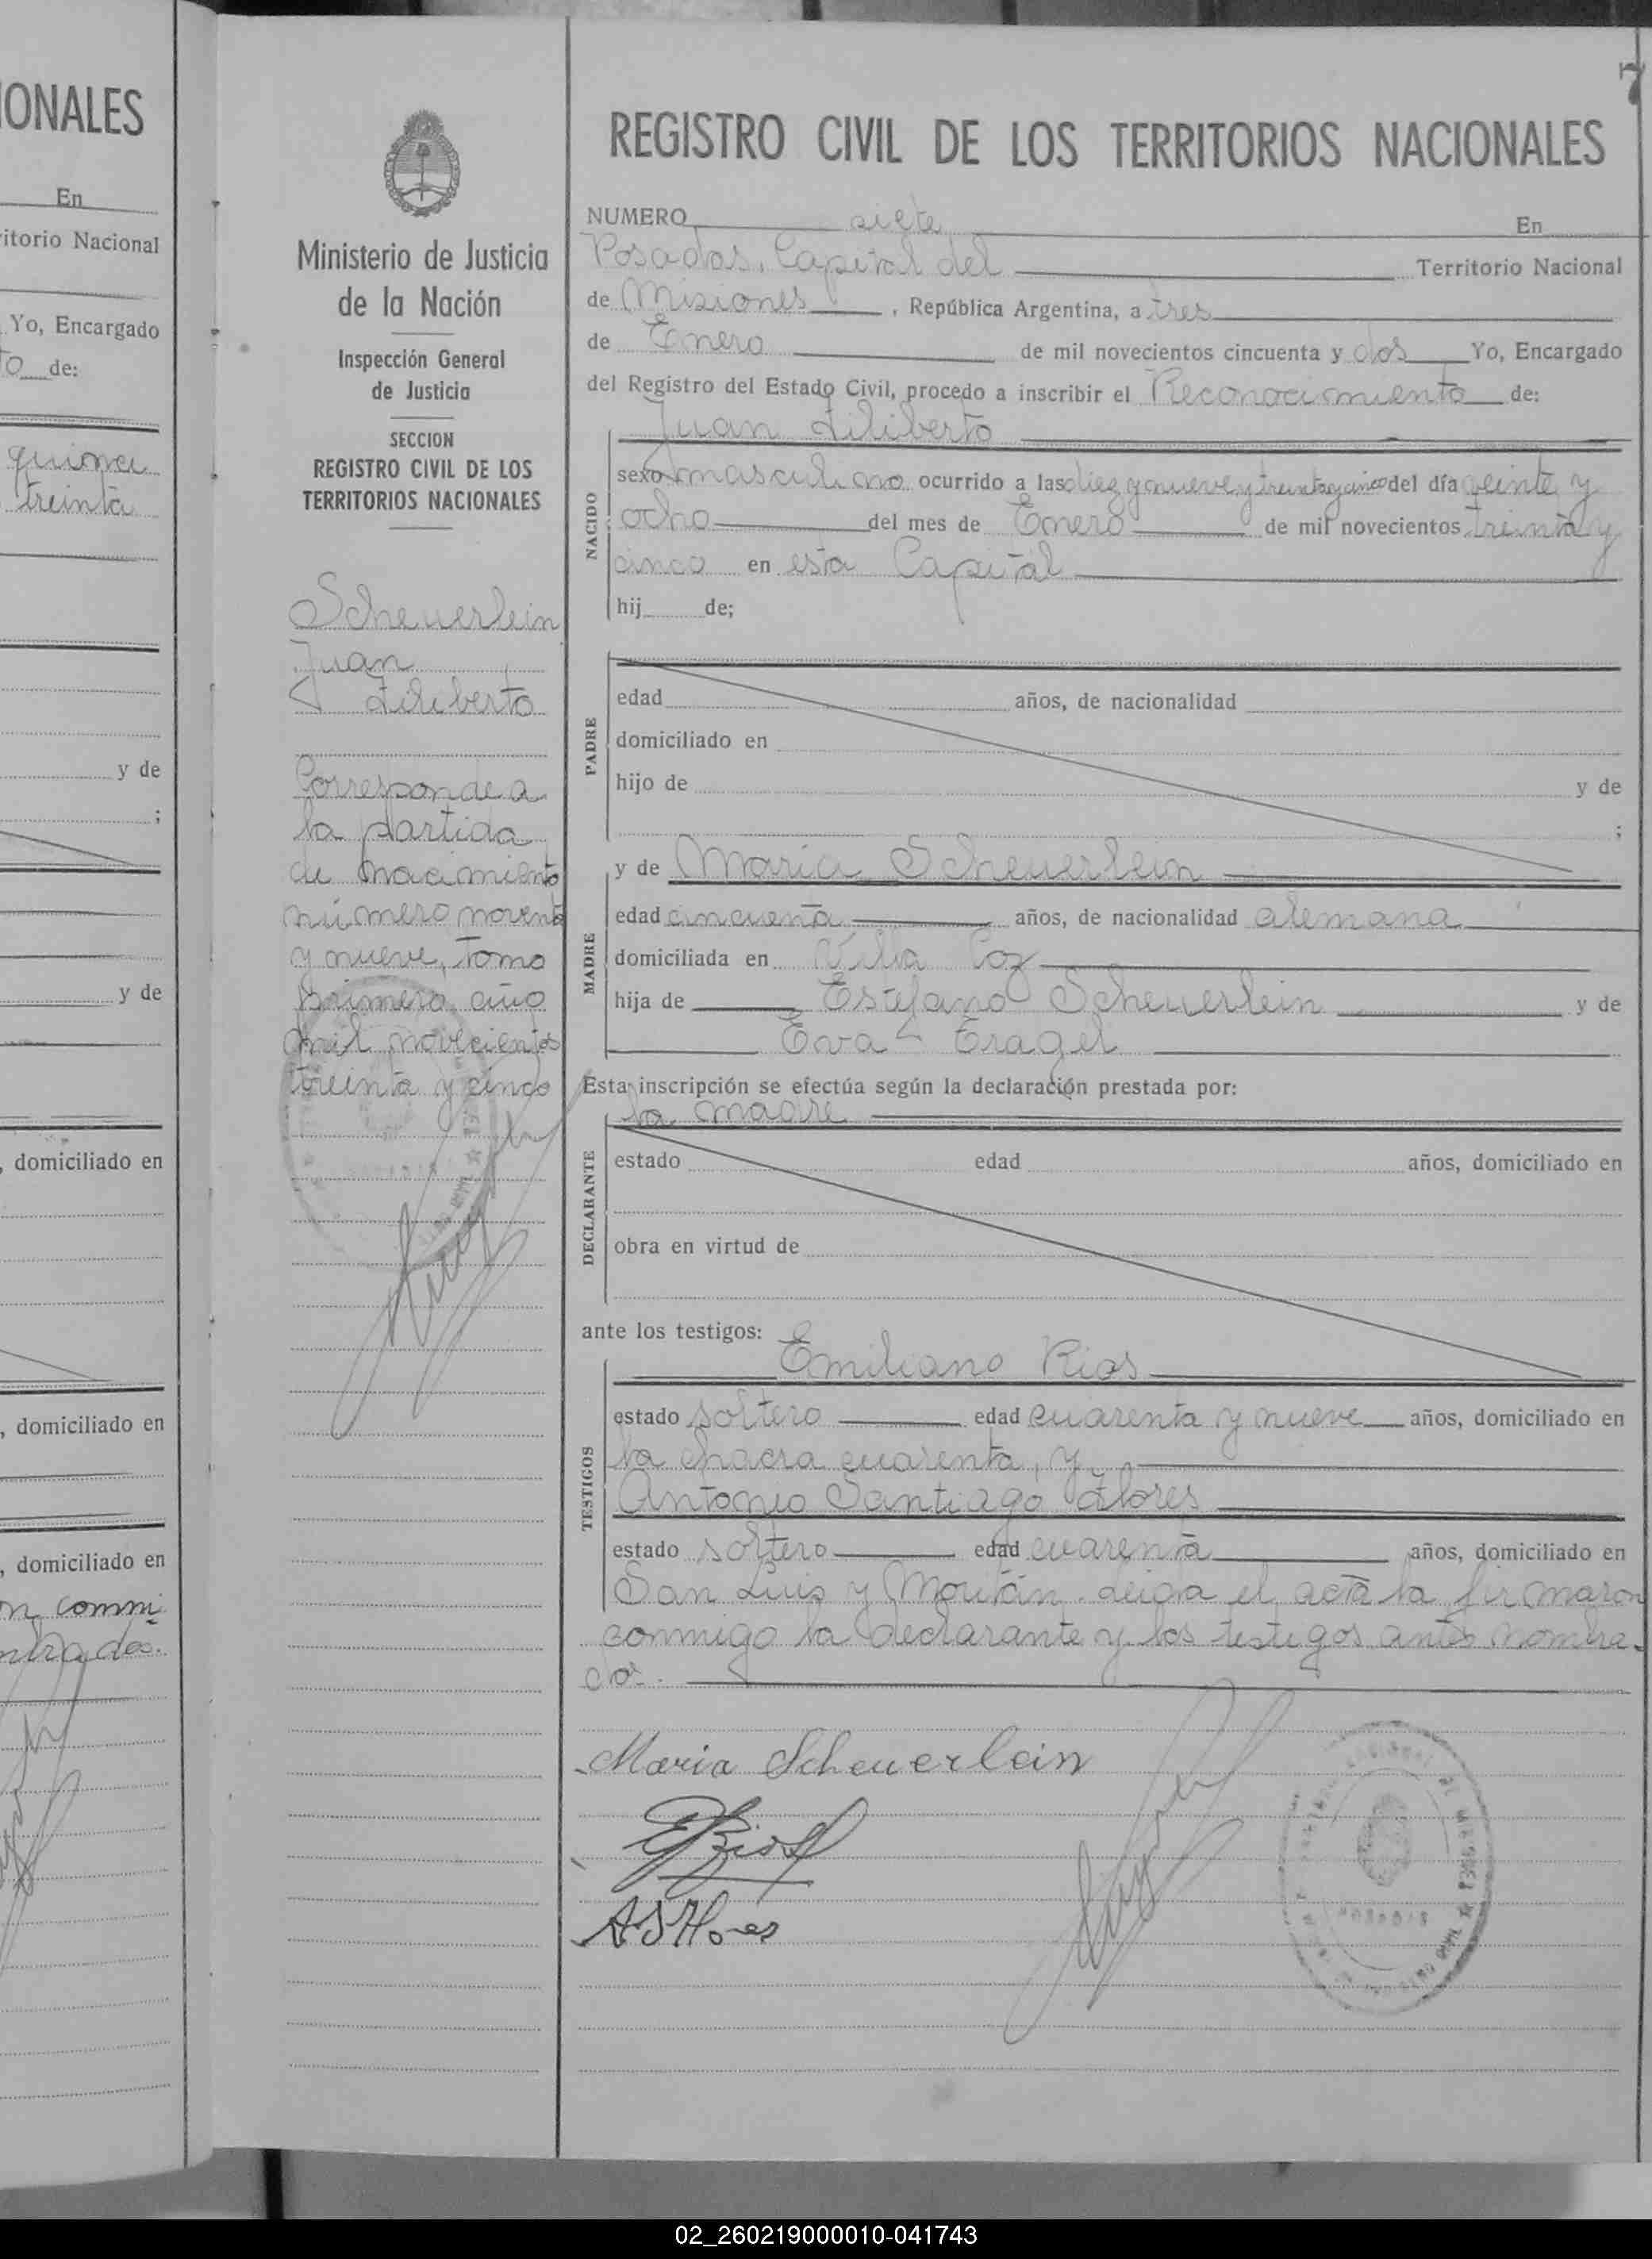 7
ONALES
En
itorio Nacional
Yo, Encargado
to de:
quince
treinta
y de
;
y de
, domiciliado en
, domiciliado en
, domiciliado en
Ministerio de Justicia
de la Nación
Inspección General
de Justicia
SECCION
REGISTRO CIVIL DE LOS
TERRITORIOS NACIONALES
Scheuerlein
Juan
Filiberto
Corresponde a
la partida
de nacimiento
número noventa
y nueve, tomo
primero año
mil novecientos
treinta y cinco
REGISTRO CIVIL DE LOS TERRITORIOS NACIONALES
NUMERO siete En
Posadas, Capital del Territorio Nacional
de Misiones, República Argentina, a tres
de Enero de mil novecientos cincuenta y dos Yo, Encargado
del Registro del Estado Civil, procedo a inscribir el Reconocimiento de:
Juan Filiberto
NACIDO
sexo masculino ocurrido a las diez y nueve y treinta y cinco del día veinte y
ocho del mes de Enero de mil novecientos treinta y
cinco en esta Capital
hij de;
PADRE
edad años, de nacionalidad
domiciliado en
hijo de y de
;
y de Maria Scheuerlein
MADRE
edad cincuenta años, de nacionalidad alemana
domiciliada en Villa Coz
hija de Estefano Scheuerlein y de
Eva Eragel
Esta inscripción se efectúa según la declaración prestada por:
la madre
DECLARANTE
estado edad años, domiciliado en
obra en virtud de
ante los testigos:
Emiliano Rios
TESTIGOS
estado soltero edad cuarenta y nueve años, domiciliado en
la chacra cuarenta, y
Antonio Santiago Flores
estado soltero edad cuarenta años, domiciliado en
San Luis y Moután. Leida el acta la firmaron
conmigo la declarante y los testigos antes nombra-
dos.
Maria Scheuerlein
E Rios
A S Flores
POSADAS
02_260219000010-041743